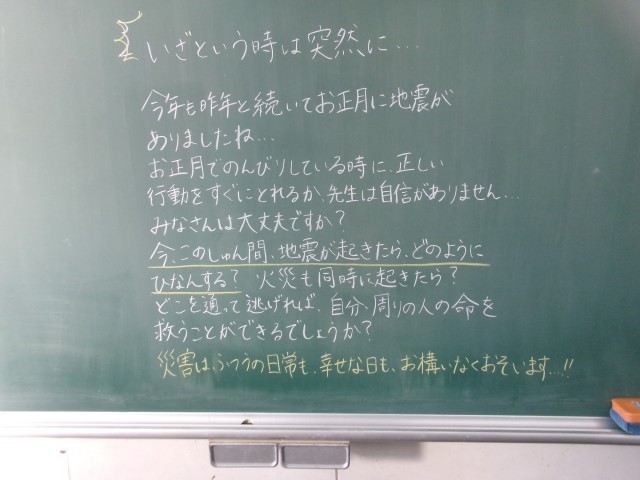 いざという時は突然に…
今年も昨年と続いてお正月に地震が
ありましたね…
お正月でのんびりしている時に、正しい
行動をすぐにとれるか、先生は自信がありません…
みなさんは大丈夫ですか？
今、このしゅん間、地震が起きたら、どのように
ひなんする？ 火災も同時に起きたら？
どこを通って逃げれば、自分、周りの人の命を
救うことができるでしょうか？
災害は、ふつうの日常も、幸せな日も、お構いなくおそいます…!!